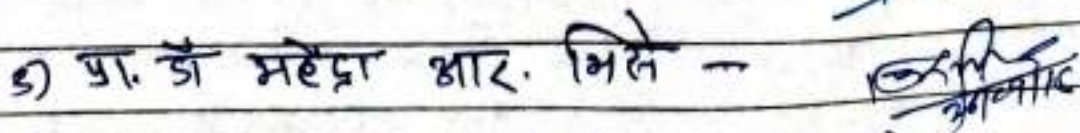 5) प्रा. डॉ महेंद्रा आर. भिसे -